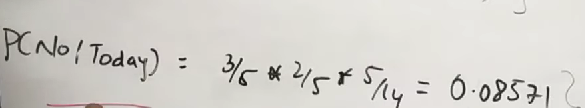 P(No/Today) = 3/5 * 2/5 * 5/14 = 0.08571